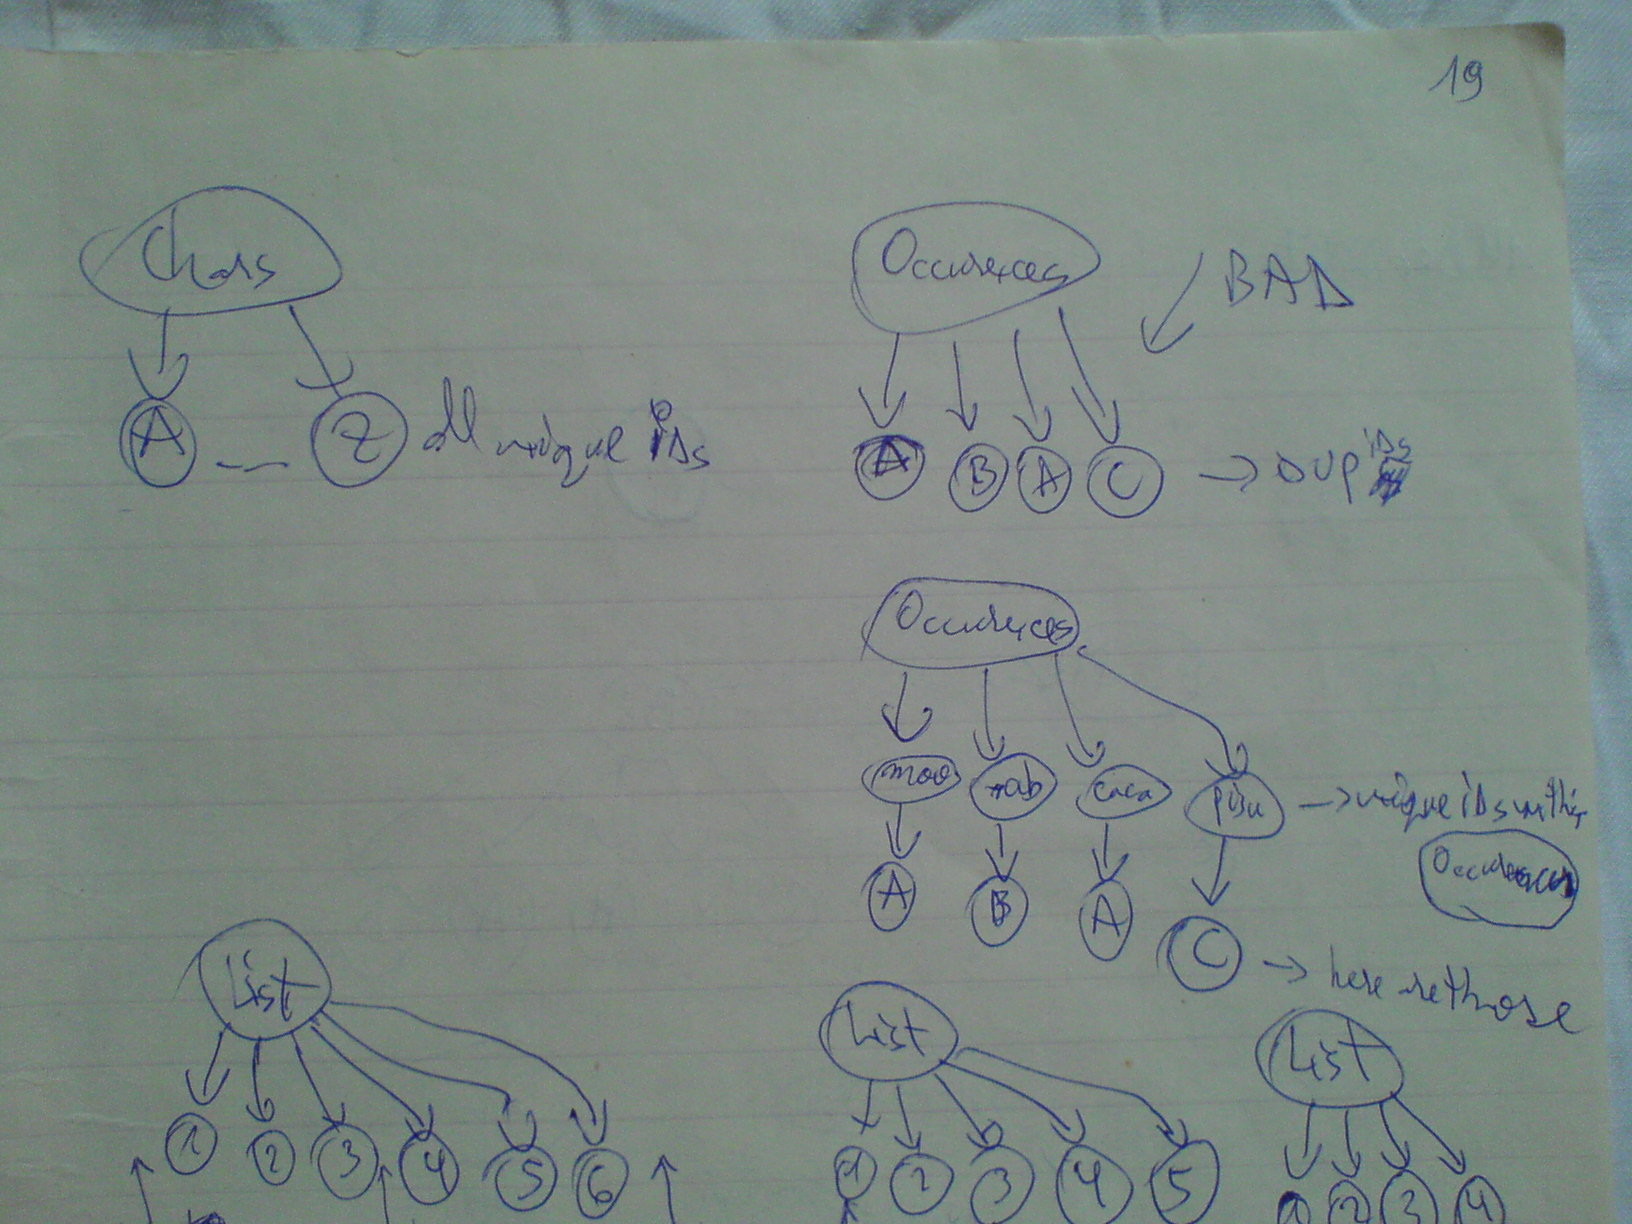 19
Chars
A Z all unique iDs
Occurences
BAD
A B A C → DUP iDs
Occurences
moo
caca
pisu → unique iDs within
Occurences
A B A C → here
List
1 2 3 4 5 6
List
1 2 3 4 5
List
1 2 3 4